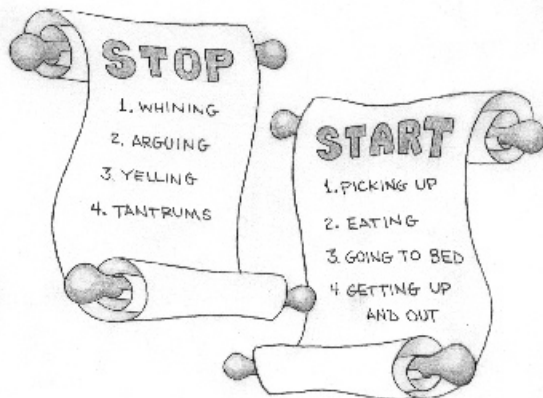 STOP
1. WHINING
2. ARGUING
3. YELLING
4. TANTRUMS
START
1. PICKING UP
2. EATING
3. GOING TO BED
4 GETTING UP
AND OUT